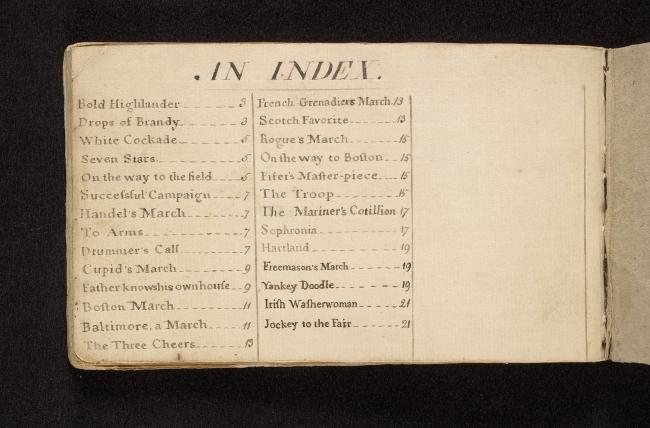 AN INDEX.
Bold Highlander 3
Drops of Brandy 3
White Cockade 5
Seven Stars 5
On the way to the field 5
Successful Campaign 7
Handel's March 7
To Arms 7
Drummer's Call 7
Cupid's March 9
Father knows his own house 9
Boston March 11
Baltimore, a March 11
The Three Cheers 13
French Grenadiers March. 13
Scotch Favorite 13
Rogue's March 15
On the way to Boston 15
Fifer's Master-piece 15
The Troop 15
The Mariner's Cotillion 17
Sophronia 17
Hartland 19
Freemason's March 19
Yankey Doodle 19
Irish Washerwoman 21
Jockey to the Fair 21